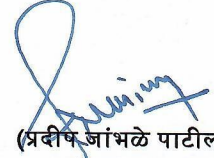 (प्रदीप जांभळे पाटील